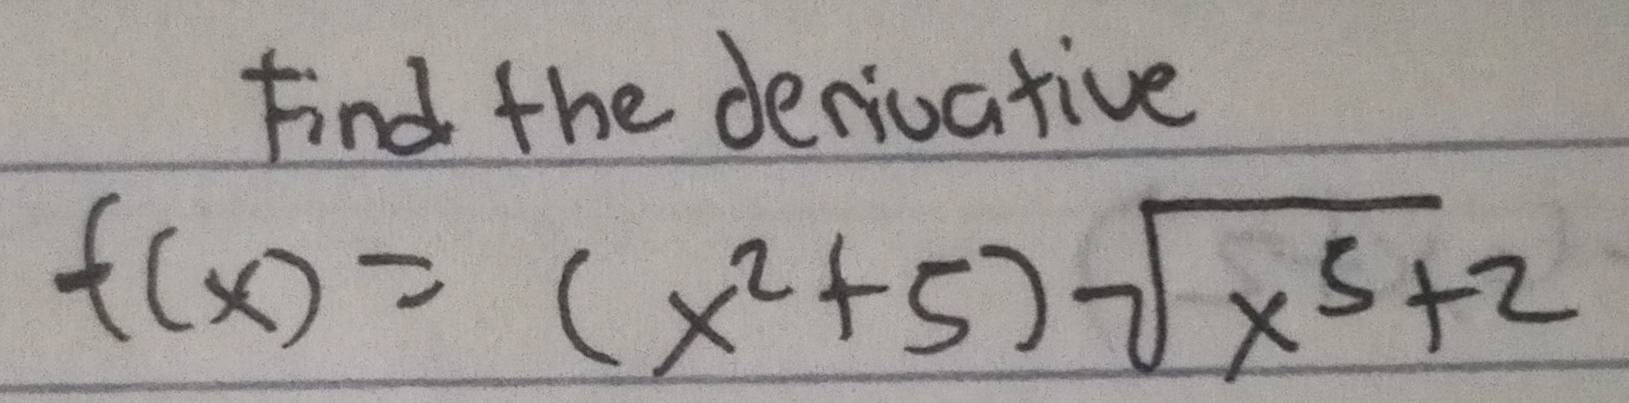 Find the derivative
f(x) = (x²+5) √(x⁵+2)